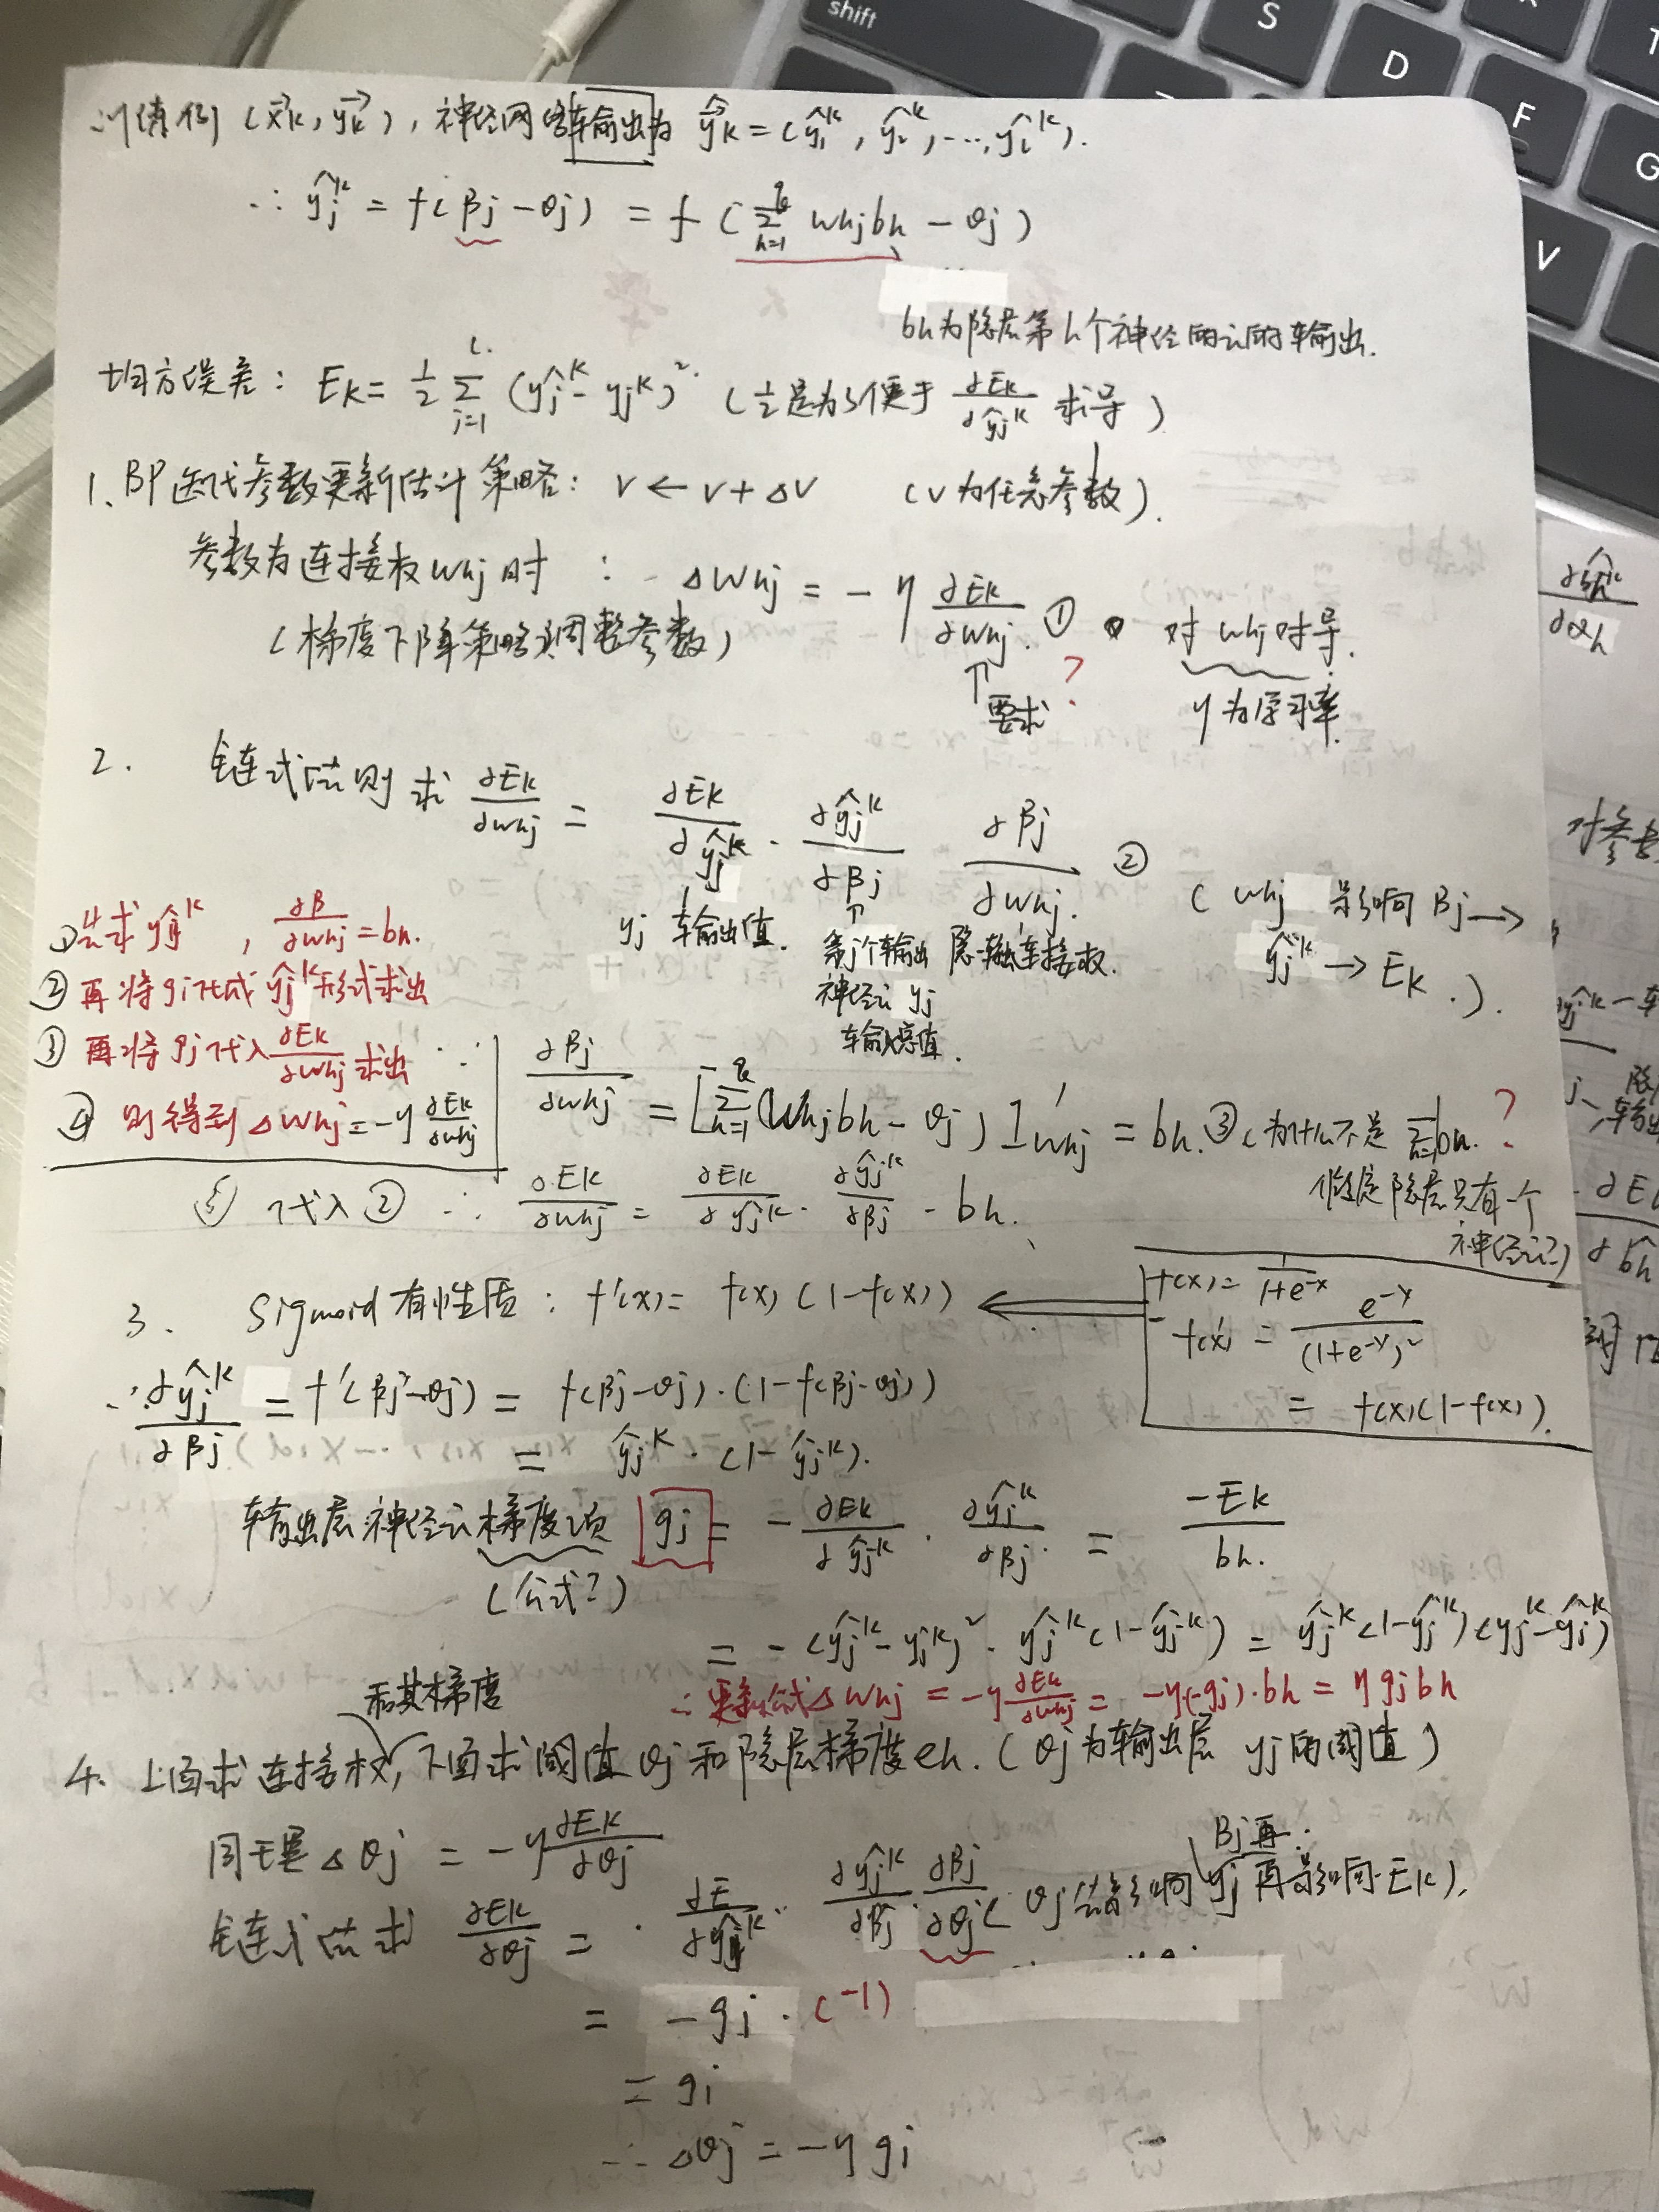 shift
S
D
F
G
V
训练例 (x⃗k, y⃗k), 神经网络输出为 ŷk = (ŷ₁ᵏ, ŷ₂ᵏ, ..., ŷₗᵏ).
∴ ŷjᵏ = f(βj - θj) = f(∑_{h=1}^{q} whj bh - θj)
bh为隐层第h个神经元的输出.
均方误差: Ek = 1/2 ∑_{j=1}^{L} (ŷjᵏ - yjᵏ)². (1/2是为了便于 ∂Ek/∂ŷjᵏ 求导)
1. BP迭代参数更新估计策略: v ← v + Δv (v为任意参数).
参数为连接权whj时: Δwhj = -η ∂Ek/∂whj. ① 对whj求导.
(梯度下降策略调整参数) ↑要求 ? η为学习率.
2. 链式法则求 ∂Ek/∂whj = ∂Ek/∂ŷjᵏ · ∂ŷjᵏ/∂βj ∂βj/∂whj. ②
(whj 影响 βj → ŷjᵏ → Ek.)
yj 输出值. 第j个输出神经元yj输入值. 连接权.
①先求ŷjᵏ, ∂β/∂whj = bh.
②再将gj化成ŷjᵏ形式求出
③再将gj代入∂Ek/∂whj求出
④则得到Δwhj = -η ∂Ek/∂whj
∵ ∂βj/∂whj = [∑_{h=1}^{q} (whj bh - θj)]'whj = bh. ③ (为什么不是 ∑bh. ?
假定隐层只有一个神经元?)
⑤ 代入② ∴ ∂Ek/∂whj = ∂Ek/∂ŷjᵏ · ∂ŷjᵏ/∂βj · bh.
3. Sigmoid有性质: f'(x) = f(x)(1-f(x)) ⇐
f(x) = 1/(1+e⁻ˣ)
f(x)' = e⁻ˣ/(1+e⁻ˣ)²
= f(x)(1-f(x)).
∴ ∂ŷjᵏ/∂βj = f'(βj-θj) = f(βj-θj)·(1-f(βj-θj))
= ŷjᵏ · (1-ŷjᵏ).
输出层神经元梯度项 gj = -∂Ek/∂ŷjᵏ · ∂ŷjᵏ/∂βj = -Ek/bh.
(公式?)
= -(ŷjᵏ - yjᵏ)² · ŷjᵏ(1-ŷjᵏ) = ŷjᵏ(1-ŷjᵏ)(yjᵏ-ŷjᵏ)
∴ 更新公式Δwhj = -η ∂Ek/∂whj = -η(-gj)·bh = ηgjbh
和其梯度
4. 上面求连接权, 下面求阈值θj和隐层梯度eh. (θj为输出层 yj的阈值)
同理Δθj = -η ∂Ek/∂θj
链式法求 ∂Ek/∂θj = ∂E/∂ŷjᵏ · ∂ŷjᵏ/∂βj · ∂βj/∂θj (θj先影响 βj再 yj再影响Ek).
= -gj · (-1)
= gj
∴ Δθj = -ηgj